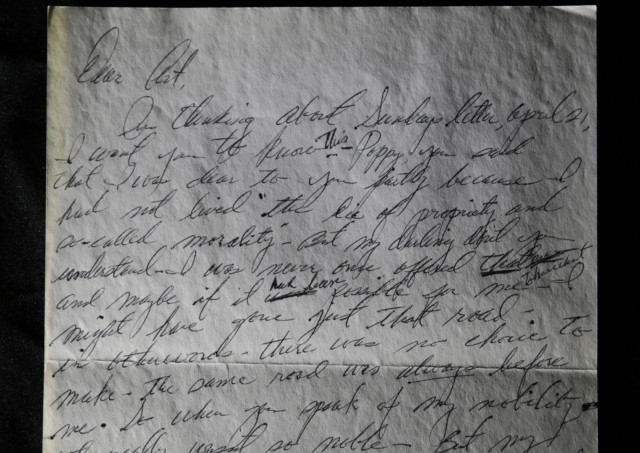 Dear Art,
In thinking about Sundays letter, april 21,
I want you to know this - Poppy you said
that I was dear to you partly because I
had not lived "the lie of propriety and
so-called morality" - But my darling don't you
understand - I was never once offered that
and maybe if it had been possible for me - I
might have gone just that road -
in otherwords - there was no choice to
make - the same road was always before
me. So when you speak of my nobility
it really wasn't so noble - But my